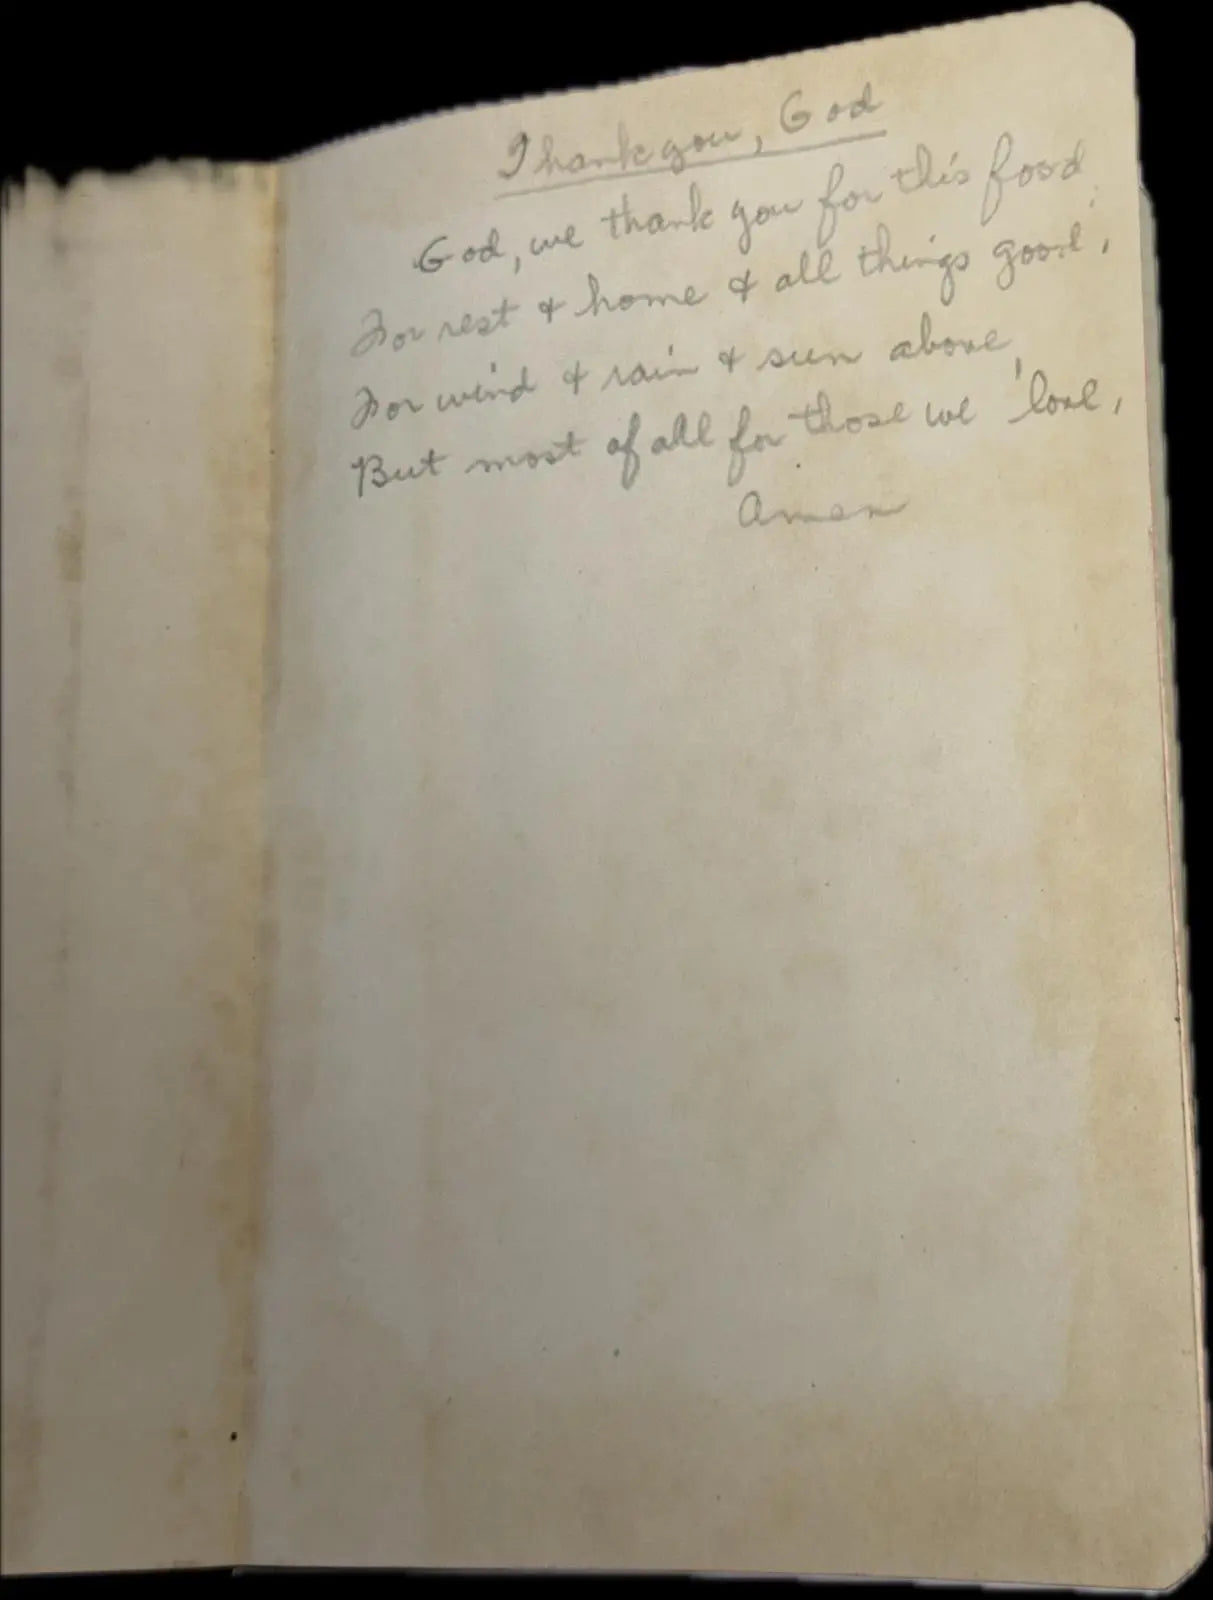 Thank you, God
God, we thank you for this food,
For rest & home & all things good,
For wind & rain & sun above,
But most of all for those we love,
Amen